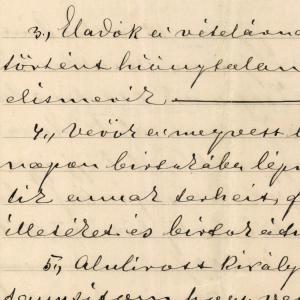 3., Eladók a vételárna
történt hiánytalan
elismerik.
4., Vevők a megvett i
napon birtokába lép
tik annak terheit, 
illetéket és birtokát
5., Alulirott Király